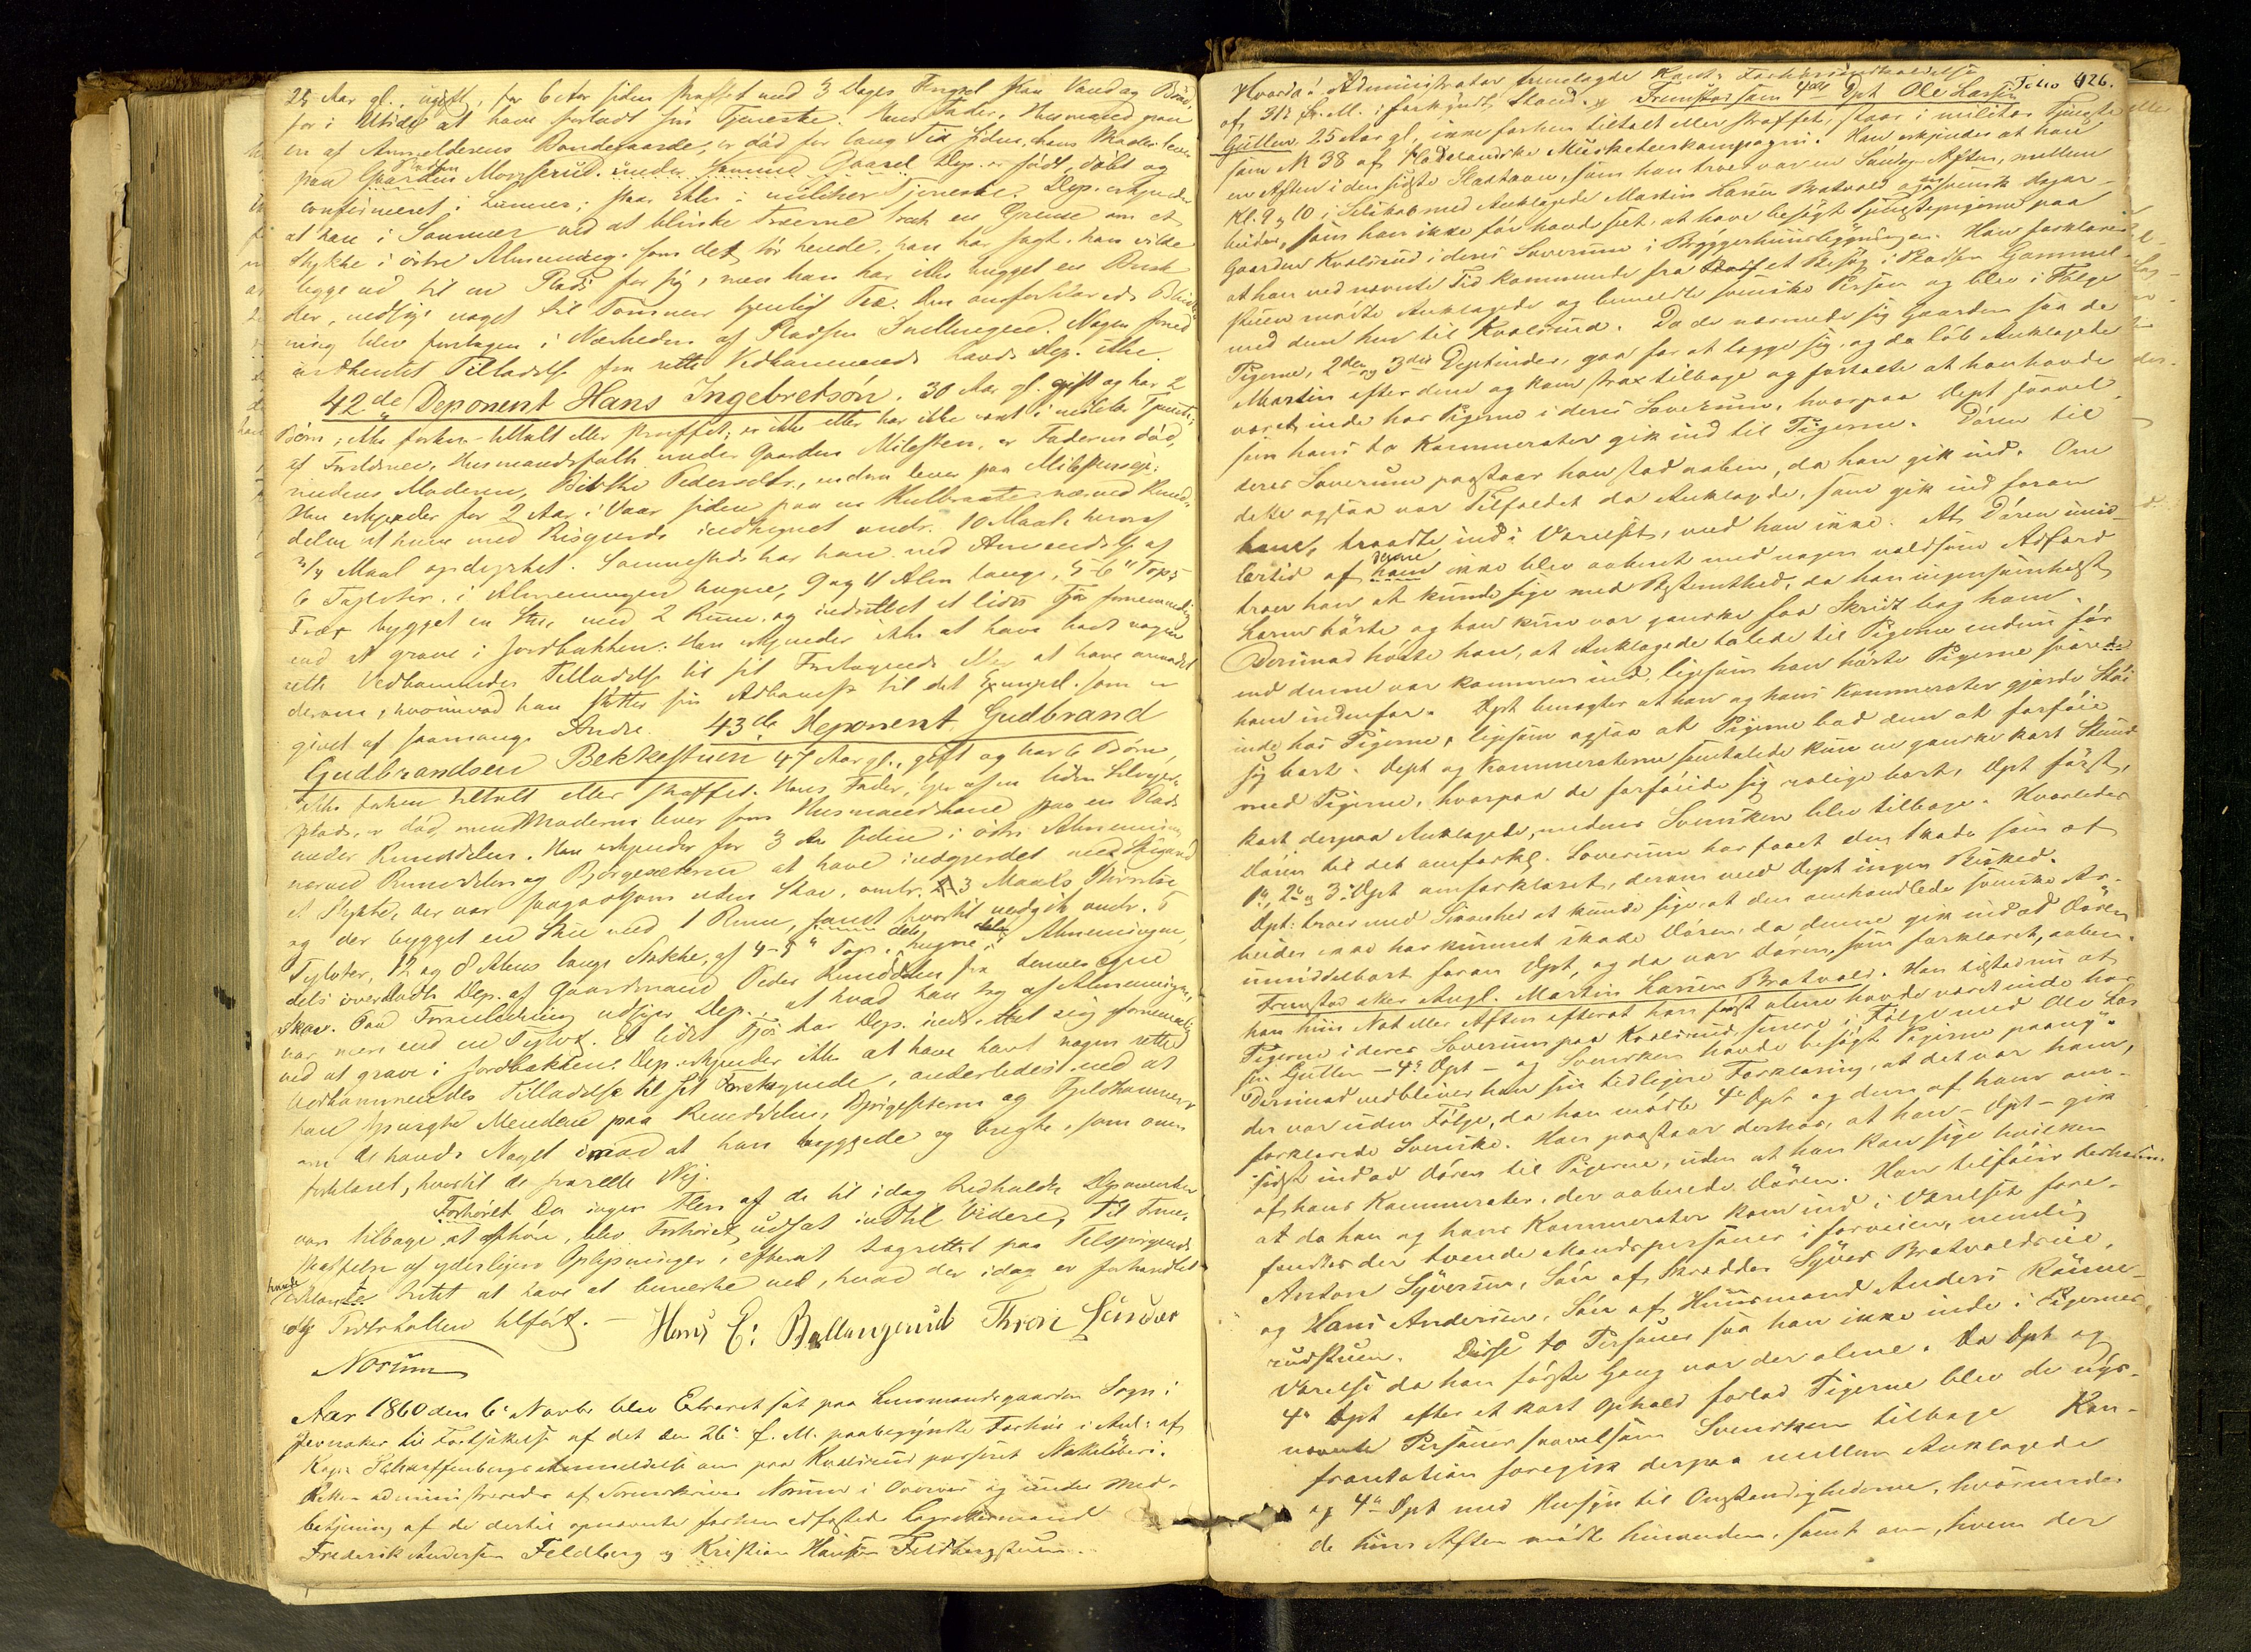 25 Aar gl., ugift, for 6 Aar siden straffet med 3 Dages Fængsel paa Vand og Brød,
for i Utide at have forladt sin Tjeneste. Hans Fader, Husmand paa
en af Anmelderens Bondegaarde, er død for lang Tid siden, hans Moder lever
paa Pladsen Morsterud under samme Gaard. Dep. er født, døbt og
confirmeret i Lunner; staar ikke i militær Tjeneste. Dep. erkjender
at han i Sommer ved at blinke Træerne trak en Grændse om et
Stykke i østre Almenning. Som det tør hende, han har sagt, han vilde
lægge ud til en Plads for sig, men han har ikke hugget en Busk
der, nedsige noget til Tømmer tjenligt Træ. Den omforklarede Blink-
ning blev foretagen i Nærheden af Pladsen Snellingen. Nogen forud
indhentet Tilladelse fra rette Vedkommende havde Dep. ikke.
42de Deponent Hans Ingebretsøn. 30 Aar gl. gift og har 2
Børn; ikke forhen tiltalt eller straffet; er ikke eller har ikke været i militær Tjeneste;
af Forældrene, Husmandsfolk under Gaarden Milesten, er Faderen død,
medens Moderen, Birthe Pedersdtr., endnu lever paa Milesten.
Han erkjender for 2 Aar i Vaar siden paa en Kulbraate nærved Rund-
delen at have med Risgjerde indhegnet omtr. 10 Maal, hvoraf
3/4 Maal opdyrket. Sammesteds har han ved Anvendelse af
6 Tylvter i Almenningen hugne, 9 og 11 Alen lange, 5-6" Tops
Træer bygget en Stue med 2 Rum, og indrettet et lidet Fjøs fornemmelig
ved at grave i Jordbakken. Han erkjender ikke at have havt nogen
rette Vedkommendes Tilladelse til sit Foretagende eller at have anmodet
derom, hvorimod han støtter sin Adkomst til det Exempel som er
givet af saamange Andre. 43de Deponent Gudbrand
Gudbrandsen Bekkestuen 47 Aar gl., gift og har 6 Børn,
ikke forhen tiltalt eller straffet. Hans Fader, Ejer af en liden Selvejer-
plads, er død, mens Moderen lever som Husmandskone paa en Plads
under Runddelen. Han erkjender for 3 Aar siden i østre Almenning
nærved Runddelen og Bjørgesæteren at have indgjerdet med Skigard
et Stykke, der var saagodtsom uden Skov, omtr. 3 Maals Størrelse
og der bygget en Stue med 1 Rum, samt hvortil medgik omtr. 5
Tylvter, 12 og 8 Alens lange Stokke, af 4-5" Top, dels hugne i Almenningen,
dels overladte Dep. af Gaardmand Peder Runddelen fra dennes egne
Skov. Paa Foranledning udsiger Dep., at hvad han tog af Almenningen,
var mere end en Tylvt. Et lidet Fjøs har Dep. indrettet sig fornemmelig
ved at grave i Jordbakken. Dep. erkjender ikke at have havt nogen rette
Vedkommendes Tilladelse til sit Foretagende, anderledes end at
han spurgte Mændene paa Runddelen, Bjørgesæteren og Fjeldhammer
om de havde Noget imod at han byggede og brugte, som om-
forklaret, hvortil de svarede Nej.
Forhøret Da ingen Flere af de til idag tilholdte Deponenter
var tilbage at afhøre, blev Forhøret udsat indtil Videre, til Frem-
skaffelse af yderligere Oplysninger, efterat Lagrettet paa Tilspørgende
havde erklæret Intet at have at bemærke ved, hvad der idag er forhandlet
og Protokollen tilført. — Hans E: Ballangrud Thron Lunder
Norum
Aar 1860 den 6te Novbr. blev Extraret sat paa Lensmandsgaarden Sogn i
Jevnaker til Fortsættelse af det den 26de f. M. paabegyndte Forhør i Anl: af
Kapt. Scharffenbergs Anmeldelse om paa Kvalsrud passeret Natteløberi.
Retten administreredes af Sorenskriver Norum i Overvær og under Med-
betjening af de dertil opnævnte forhen edfæstede Lagrettesmænd
Frederik Andersen Feldberg og Kristian Hansen Feldbergstuen.
Folio 426.
Hvorda! Administrator fremlagde Konst. Fuldmægtigbeskikkelse
af 31te f. M. i forkyndt Stand. Fremstod som 4de Dpt Ole Larsen
Gutten, 25 Aar gl., ikke forhen tiltalt eller straffet, staar i militær Tjeneste
som № 38 af Hadelandske Musketeerkompagni. Han erkjender at han
en Aften i den sidste Slaattaan, som han troer var en Søndag Aften, mellem
Kl. 9 og 10 i Selskab med Anklagede Martin Larsen Bratvold og en svensk Dagar-
beider, som han ikke før havde seet, at have besøgt Tjenestepigerne paa
Gaarden Kvalsrud i deres Soverum i Bryggerhuusbygningen. Han forklarer
at han ved nævnte Tid kommende fra et Besøg i Pladsen Gammel-
stuen mødte Anklagede og bemeldte svenske Person og blev i Følge
med dem hen til Kvalsrud. Da de nærmede sig Gaarden saa de
Pigerne, 2den og 3die Deptinder, gaa for at lægge sig, og da løb Anklagede
Martin efter dem og kom strax tilbage og fortalte at han havde
været inde hos Pigerne i deres Soverum, hvorpaa Dept saavel
som hans to Kammerater gik ind til Pigerne. Døren til
deres Soverum paastaar han stod aaben, da han gik ind. Om
dette ogsaa var Tilfældet da Anklagede, som gik ind foran
ham, traadte ind i Værelset, ved han ikke. At Døren imid-
lertid af denne ikke blev aabnet med nogen voldsom Adfærd
troer han at kunde sige med Bestemthed, da han ingensomhelst
Larm hørte og han kun var ganske faa Skridt bag ham.
Derimod hørte han, at Anklagede talede til Pigerne endnu før
end denne var kommen ind, ligesom han hørte Pigerne svarede
ham indenfor. Dpt benægter at han og hans Kammerater gjorde Støi
inde hos Pigerne, ligesom ogsaa at Pigerne bad dem at forføie
sig bort. Dept og Kammeraterne samtalede kun en ganske kort Stund
med Pigerne, hvorpaa de forføiede sig rolige bort, Dpt først,
kort derpaa Anklagede, medens Svensken blev tilbage. Hvorledes
Døren til det omforkl. Soverum har faaet den Skade som af
1ste, 2den og 3die Dpt omforklaret, derom ved Dept ingen Besked.
Dpt: troer med Sikkerhed at kunde sige, at den omhandlede svenske Ar-
beider ikke har kunnet skade Døren, da denne gik ind ad Døren
umiddelbart foran Dpt, og da var Døren, som forklaret, aaben.
Fremstod atter Angl. Martin Larsen Bratvold. Han tilstod nu at
han hiin Nat eller Aften efterat han først alene havde været inde hos
Pigerne i deres Soverum paa Kvalsrud, senere i Følge med Ole Lar-
sen Gutten — 4de Dpt — og Svensken havde besøgt Pigerne paany.
Derimod vedbliver han sin tidligere Forklaring, at det var ham,
der var uden Følge, da han mødte 4de Dpt og den af ham om-
forklarede Svenske. Han paastaar derhos, at han — Dpt — gik
sidst ind ad Døren til Pigerne, uden at han kan sige hvilken
af hans Kammerater, der aabnede Døren. Han tilføier derhos
at da han og hans Kammerater kom ind i Værelset fore-
fandtes der tvende Mandspersoner i forveien, nemlig
Anton Syversen, Søn af Skrædder Syver Bratvoldseie,
og Hans Andersen, Søn af Huusmand Anders Kaisen-
rudstuen. Disse to Personer saa han ikke inde i Pigernes
Værelse da han første Gang var der alene. Da Dpt og
4de Dpt efter et kort Ophold forlod Pigerne blev de nys-
nævnte Personer saavelsom Svensken tilbage Kon-
frontation foregik derpaa mellem Anklagede
og 4de Dpt med Hensyn til Omstændighederne, hvorunder
de hiin Aften mødte hinanden, samt om, hvem der